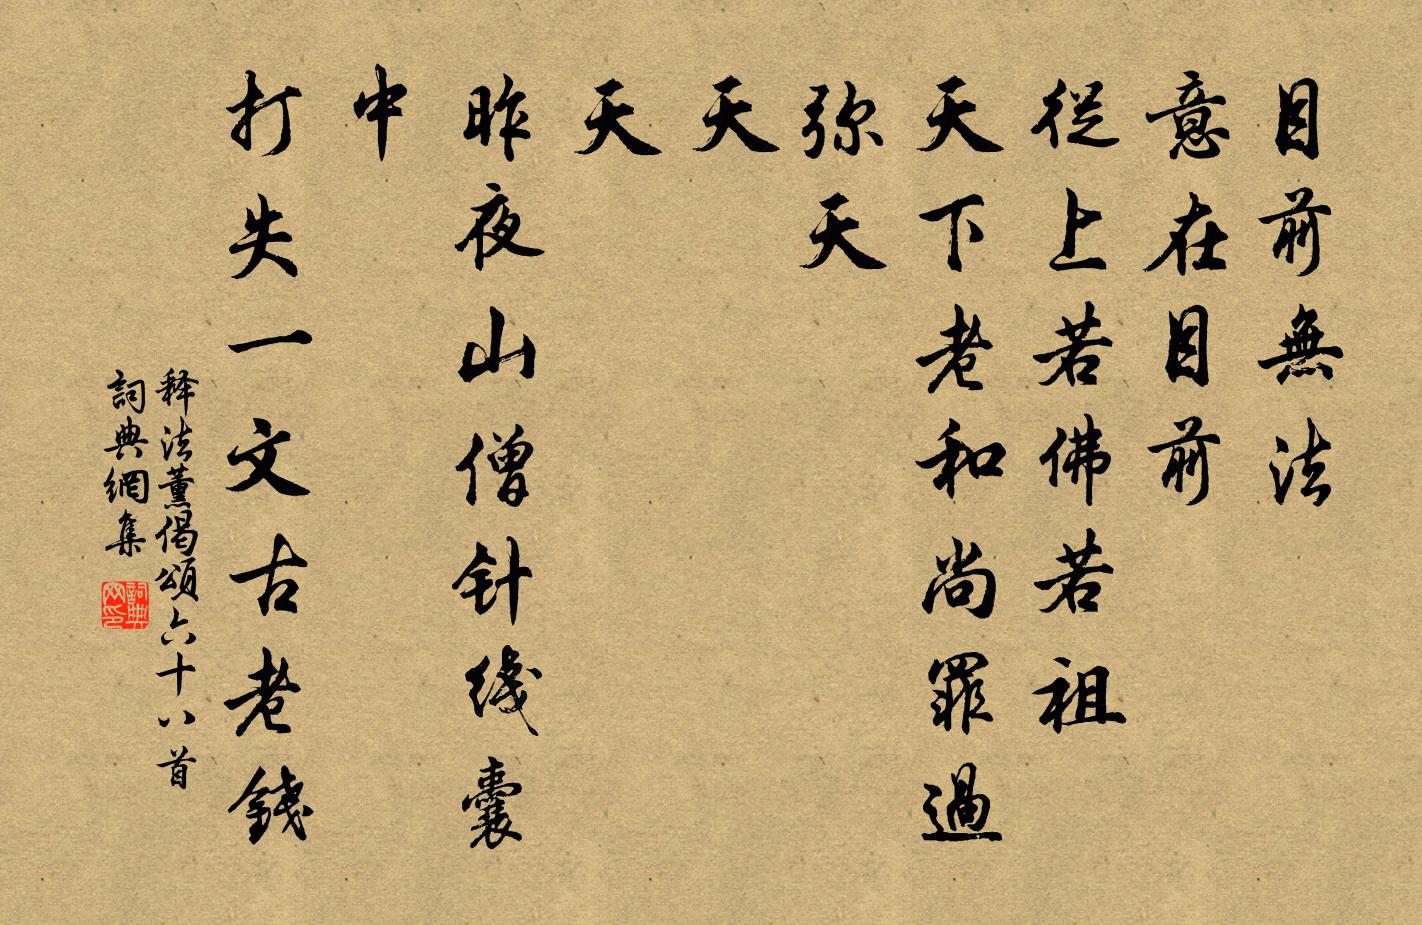 目前無法
意在目前
從上若佛若祖
天下老和尚罪過
弥天
天
天
昨夜山僧针线囊
中
打失一文古老錢
释法薰偈頌六十八首
詞典網集
詞典
网印